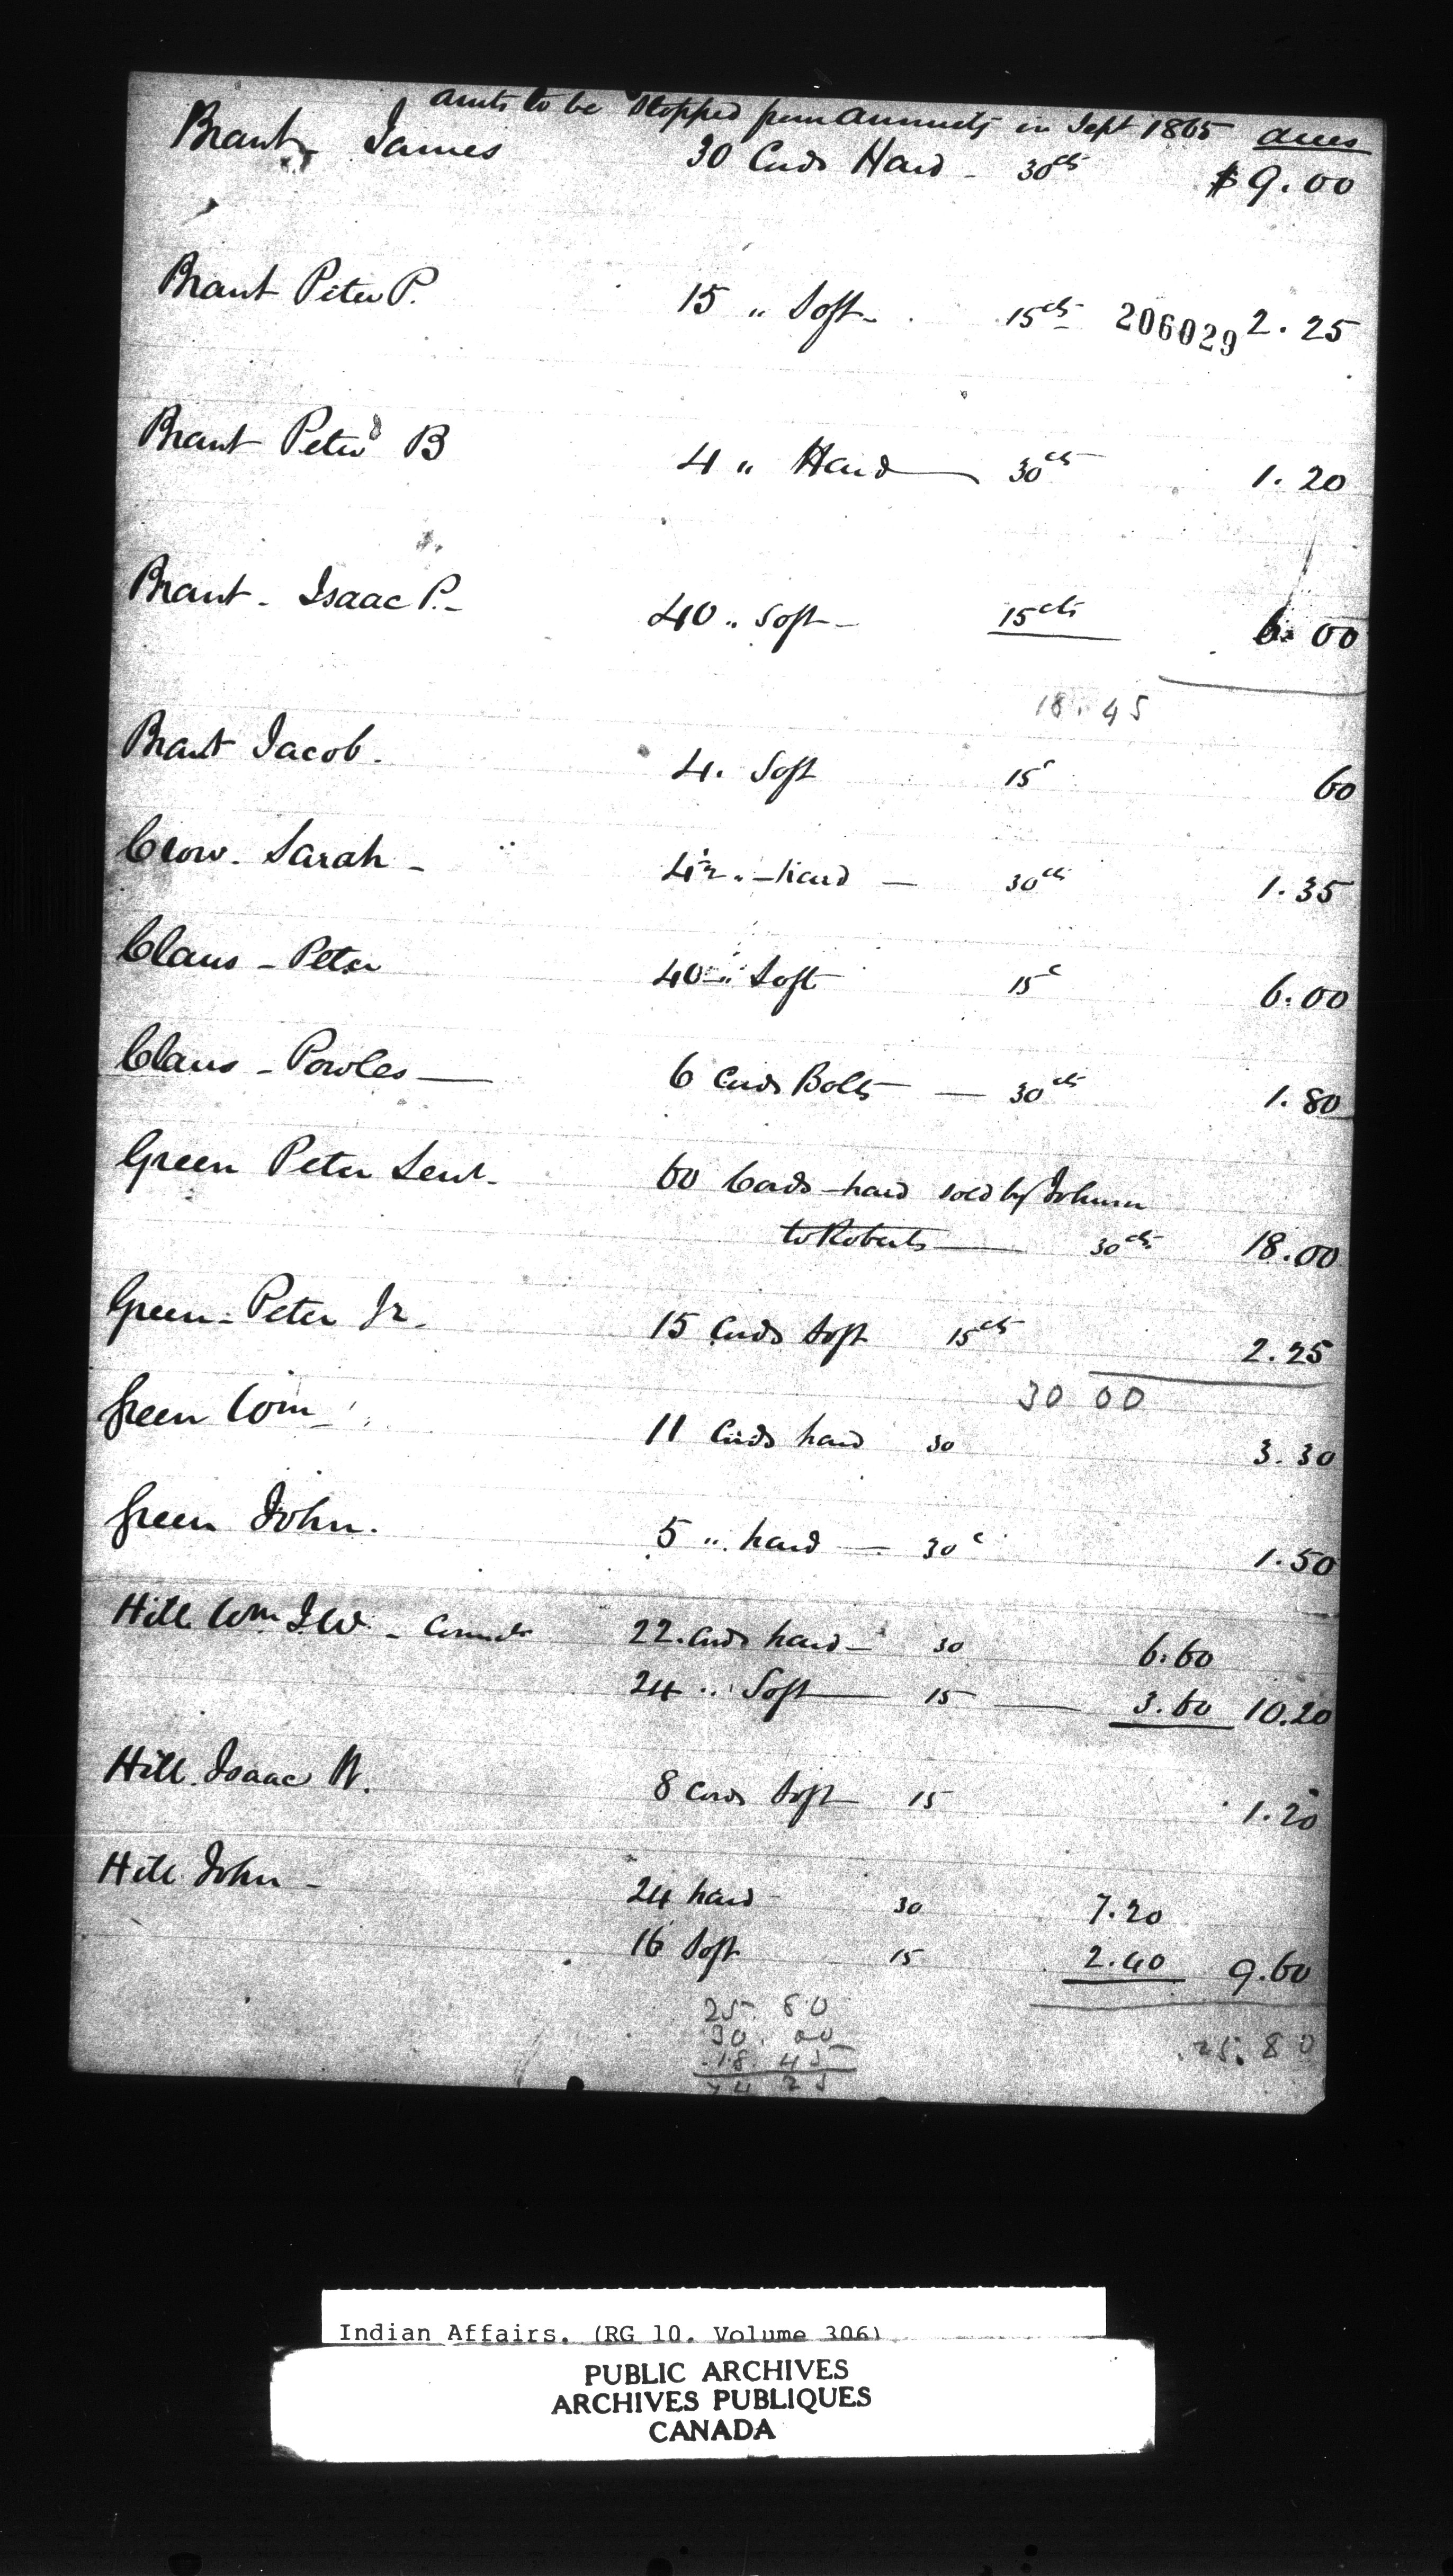 amts to be Stopped from Annuits in Sept 1865
Brant James 30 Cords Hard - 30cts $9.00
Brant Peter P. 15 " Soft - 15cts 2.25
206029
Brant Peter B 4 " Hard — 30cts 1.20
Brant - Isaac P. - 40 " Soft - 15cts 6.00
18.45
Brant Jacob. 4. Soft 15c 60
Crow. Sarah - 4½ " - hard — 30cts 1.35
Claus - Peter 40 - " Soft 15c 6.00
Claus - Powles — 6 Cords Bolts — 30cts 1.80
Green Peter Senr. 60 Cords - hard sold by Johnson
to Roberts — 30cts 18.00
Green - Peter Jr. 15 Cords Soft 15cts 2.25
30 00
Green Wm 11 Cords hard 30 3.30
Green John. 5 " hard — 30c 1.50
Hill Wm J W. - 22. Cords hard - 30 6.60
24 " Soft — 15 — 3.60 10.20
Hill. Isaac W. 8 Cords Soft 15 1.20
Hill John - 24 hard 30 7.20
16 Soft 15 2.40 9.60
25.80
25.80
30.00
18.45
74 25
Indian Affairs. (RG 10, Volume 306)
PUBLIC ARCHIVES
ARCHIVES PUBLIQUES
CANADA